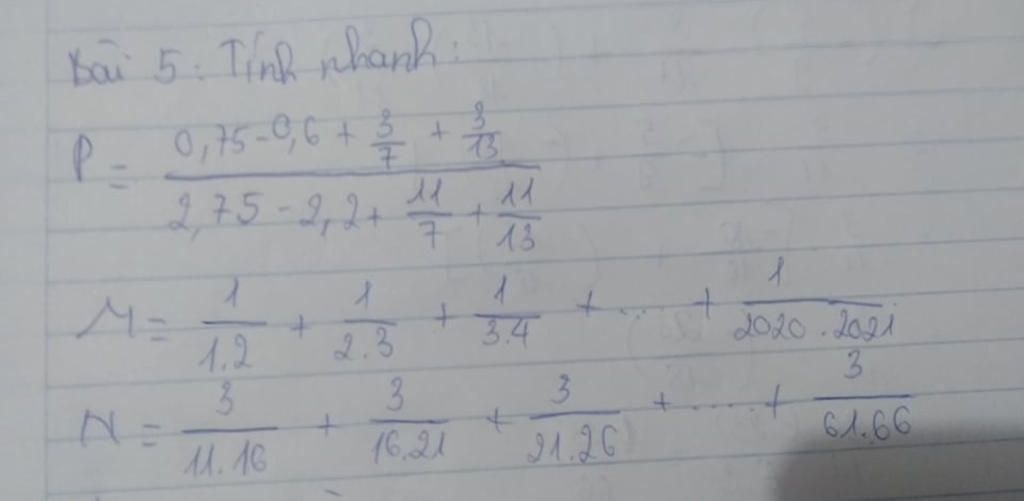 Bài 5: Tính nhanh:
P = \frac{0,75 - 0,6 + \frac{3}{7} + \frac{3}{13}}{2,75 - 2,2 + \frac{11}{7} + \frac{11}{13}}
M = \frac{1}{1.2} + \frac{1}{2.3} + \frac{1}{3.4} + ... + \frac{1}{2020.2021}
N = \frac{3}{11.16} + \frac{3}{16.21} + \frac{3}{21.26} + ..... + \frac{3}{61.66}